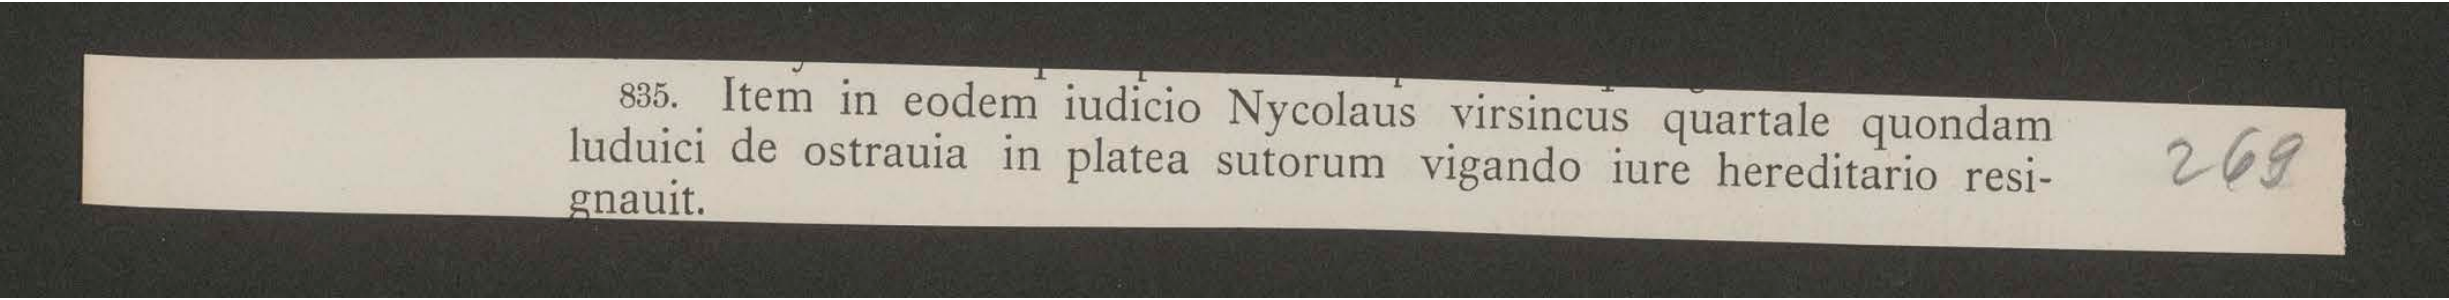 835. Item in eodem iudicio Nycolaus virsincus quartale quondam
luduici de ostrauia in platea sutorum vigando iure hereditario resi-
gnauit.
269